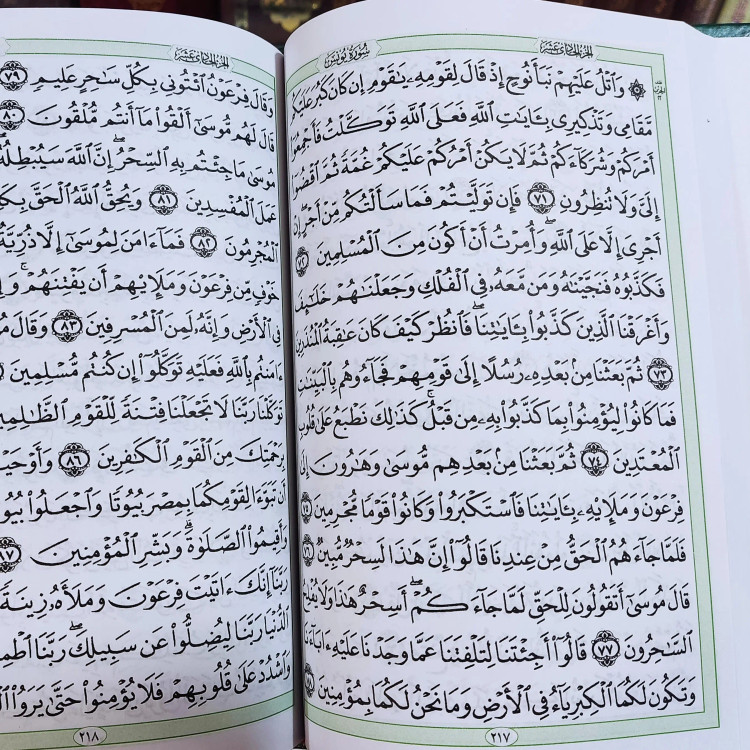 سُورَةُ يُونُسَ
الجُزْءُ الحَادِي عَشَرَ
۞ وَٱتْلُ عَلَيْهِمْ نَبَأَ نُوحٍ إِذْ قَالَ لِقَوْمِهِۦ يَٰقَوْمِ إِن كَانَ كَبُرَ عَلَيْكُم
مَّقَامِي وَتَذْكِيرِي بِـَٔايَٰتِ ٱللَّهِ فَعَلَى ٱللَّهِ تَوَكَّلْتُ فَأَجْمِعُوٓا۟
أَمْرَكُمْ وَشُرَكَآءَكُمْ ثُمَّ لَا يَكُنْ أَمْرُكُمْ عَلَيْكُمْ غُمَّةً ثُمَّ ٱقْضُوٓا۟
إِلَىَّ وَلَا تُنظِرُونِ ٧١ فَإِن تَوَلَّيْتُمْ فَمَا سَأَلْتُكُم مِّنْ أَجْرٍ إِنْ
أَجْرِيَ إِلَّا عَلَى ٱللَّهِ وَأُمِرْتُ أَنْ أَكُونَ مِنَ ٱلْمُسْلِمِينَ ٧٢
فَكَذَّبُوهُ فَنَجَّيْنَٰهُ وَمَن مَّعَهُۥ فِي ٱلْفُلْكِ وَجَعَلْنَٰهُمْ خَلَٰٓئِفَ
وَأَغْرَقْنَا ٱلَّذِينَ كَذَّبُوا۟ بِـَٔايَٰتِنَا فَٱنظُرْ كَيْفَ كَانَ عَٰقِبَةُ ٱلْمُنذَرِينَ
٧٣ ثُمَّ بَعَثْنَا مِنۢ بَعْدِهِۦ رُسُلًا إِلَىٰ قَوْمِهِمْ فَجَآءُوهُم بِٱلْبَيِّنَٰتِ
فَمَا كَانُوا۟ لِيُؤْمِنُوا۟ بِمَا كَذَّبُوا۟ بِهِۦ مِن قَبْلُ كَذَٰلِكَ نَطْبَعُ عَلَىٰ قُلُوبِ
ٱلْمُعْتَدِينَ ٧٤ ثُمَّ بَعَثْنَا مِنۢ بَعْدِهِم مُّوسَىٰ وَهَٰرُونَ إِلَىٰ
فِرْعَوْنَ وَمَلَإِي۟هِۦ بِـَٔايَٰتِنَا فَٱسْتَكْبَرُوا۟ وَكَانُوا۟ قَوْمًا مُّجْرِمِينَ ٧٥
فَلَمَّا جَآءَهُمُ ٱلْحَقُّ مِنْ عِندِنَا قَالُوٓا۟ إِنَّ هَٰذَا لَسِحْرٌ مُّبِينٌ ٧٦
قَالَ مُوسَىٰٓ أَتَقُولُونَ لِلْحَقِّ لَمَّا جَآءَكُمْ أَسِحْرٌ هَٰذَا وَلَا يُفْلِحُ
ٱلسَّٰحِرُونَ ٧٧ قَالُوٓا۟ أَجِئْتَنَا لِتَلْفِتَنَا عَمَّا وَجَدْنَا عَلَيْهِ ءَابَآءَنَا
وَتَكُونَ لَكُمَا ٱلْكِبْرِيَآءُ فِي ٱلْأَرْضِ وَمَا نَحْنُ لَكُمَا بِمُؤْمِنِينَ ٧٨
٢١٧
الجُزْءُ الحَادِي عَشَرَ
وَقَالَ فِرْعَوْنُ ٱئْتُونِي بِكُلِّ سَٰحِرٍ عَلِيمٍ ٧٩
قَالَ لَهُم مُّوسَىٰٓ أَلْقُوا۟ مَآ أَنتُم مُّلْقُونَ ٨٠
مُوسَىٰ مَا جِئْتُم بِهِ ٱلسِّحْرُ إِنَّ ٱللَّهَ سَيُبْطِلُهُۥٓ
عَمَلَ ٱلْمُفْسِدِينَ ٨١ وَيُحِقُّ ٱللَّهُ ٱلْحَقَّ
ٱلْمُجْرِمُونَ ٨٢ فَمَآ ءَامَنَ لِمُوسَىٰٓ إِلَّا ذُرِّيَّةٌ
خَوْفٍ مِّن فِرْعَوْنَ وَمَلَإِي۟هِمْ أَن يَفْتِنَهُمْ
فِي ٱلْأَرْضِ وَإِنَّهُۥ لَمِنَ ٱلْمُسْرِفِينَ ٨٣ وَقَالَ
ءَامَنتُم بِٱللَّهِ فَعَلَيْهِ تَوَكَّلُوٓا۟ إِن كُنتُم مُّسْلِمِينَ
تَوَكَّلْنَا رَبَّنَا لَا تَجْعَلْنَا فِتْنَةً لِّلْقَوْمِ ٱلظَّٰلِمِينَ
بِرَحْمَتِكَ مِنَ ٱلْقَوْمِ ٱلْكَٰفِرِينَ ٨٦
أَن تَبَوَّءَا لِقَوْمِكُمَا بِمِصْرَ بُيُوتًا وَٱجْعَلُوا۟
وَأَقِيمُوا۟ ٱلصَّلَوٰةَ وَبَشِّرِ ٱلْمُؤْمِنِينَ ٨٧
رَبَّنَآ إِنَّكَ ءَاتَيْتَ فِرْعَوْنَ وَمَلَأَهُۥ زِينَةً
ٱلدُّنْيَا رَبَّنَا لِيُضِلُّوا۟ عَن سَبِيلِكَ رَبَّنَا
وَٱشْدُدْ عَلَىٰ قُلُوبِهِمْ فَلَا يُؤْمِنُوا۟ حَتَّىٰ يَرَوُا۟
٢١٨